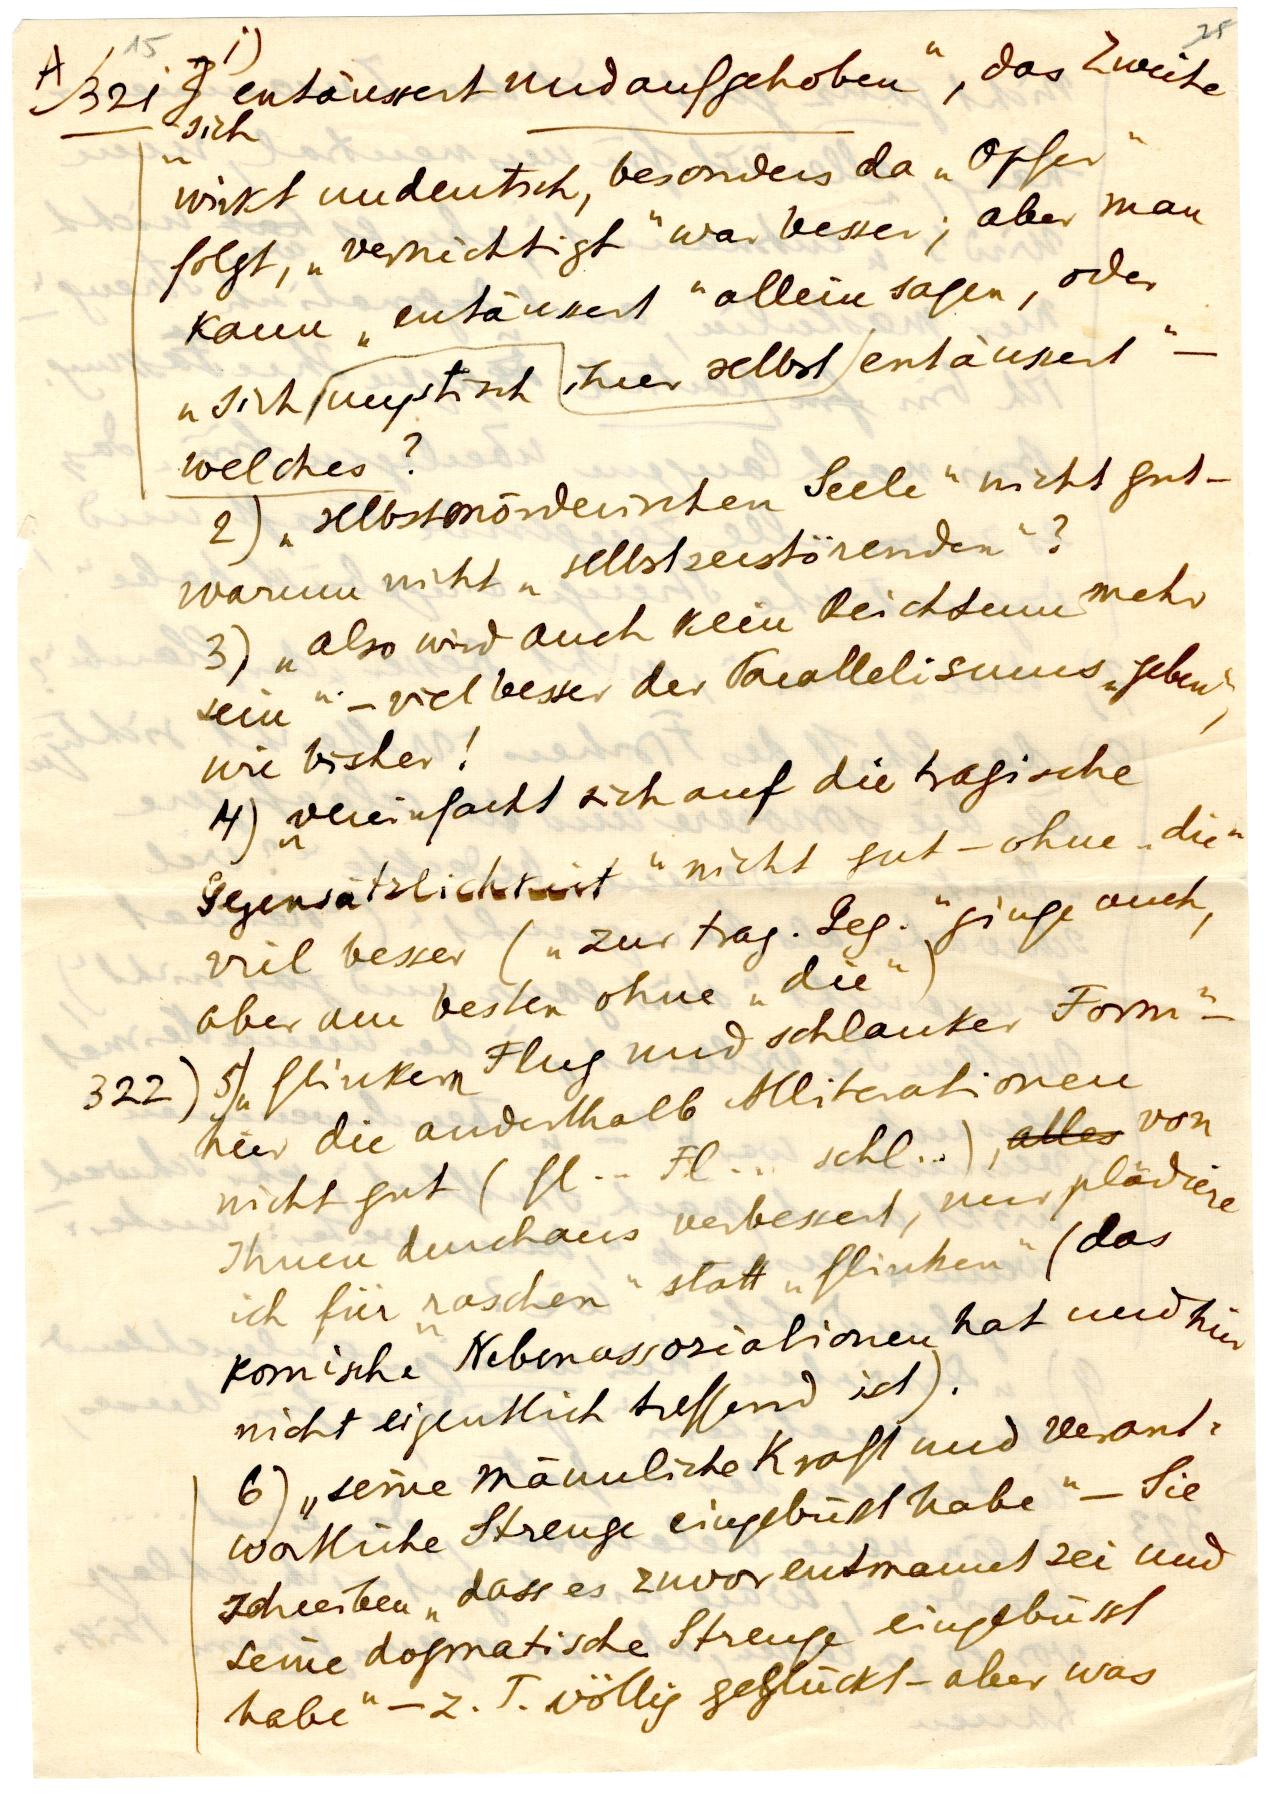 15
28
A/321 1) „sich entäussert und aufgehoben“, das Zweite
wirkt undeutsch, besonders da „Opfer“
folgt, „vernichtigt“ war besser; aber man
kann „entäussert“ allein sagen, oder
„sich mystisch ihrer selbst entäussert“ –
welches?
2) „selbstmörderischen Seele“ nicht gut –
warum nicht „selbstzerstörenden“?
3) „also wird auch kein Reichtum mehr
sein“ – viel besser der Parallelismus „geben“,
wie bisher!
4) „vereinfacht sich auf die tragische
Gegensätzlichkeit“ nicht gut – ohne „die“
viel besser („zur trag. Geg.“ ginge auch,
aber am besten ohne „die“)
322) 5) „flinkem Flug und schlanker Form“ –
hier die anderthalb Alliterationen
nicht gut (fl... Fl... schl...), alles von
Ihnen durchaus verbessert, nur plädiere
ich für „raschen“ statt „flinken“ (das
komische Nebenassoziationen hat und hier
nicht eigentlich treffend ist).
6) „seine männliche Kraft und verant-
wortliche Strenge eingebüsst habe“ – Sie
schreiben „dass es zuvor entmannt sei und
seine dogmatische Strenge eingebüsst
habe“ – z. T. völlig geglückt – aber was